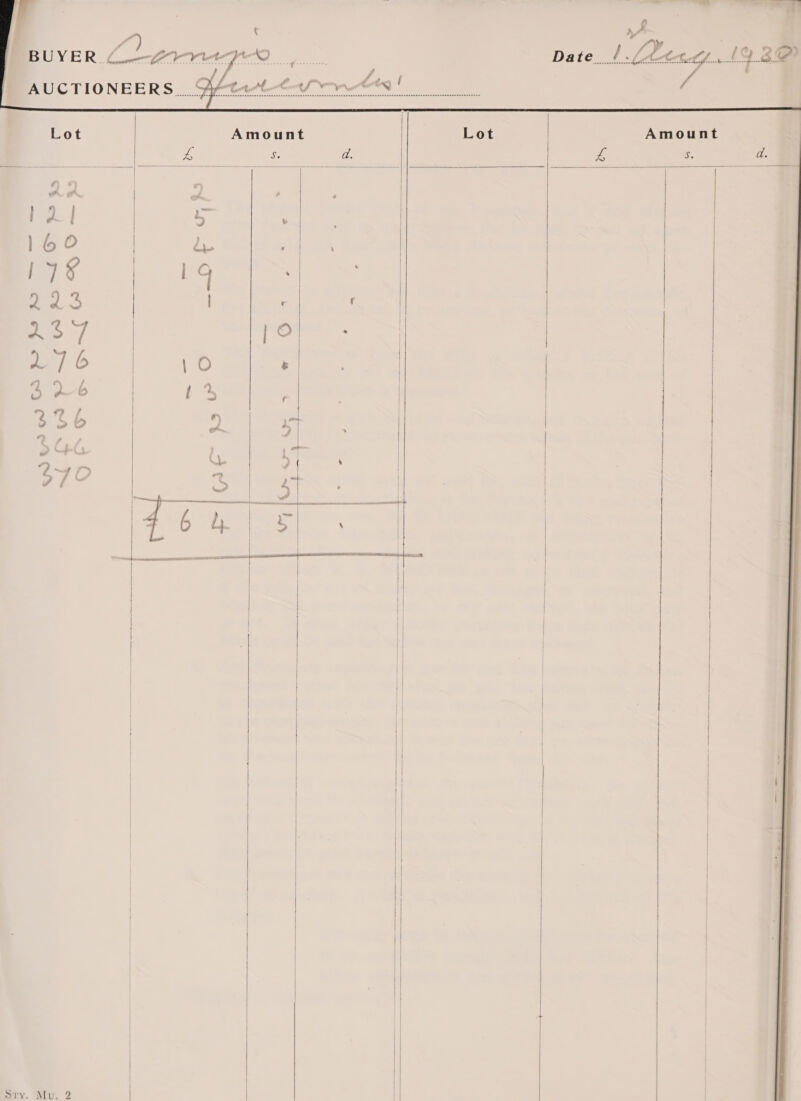 BUYER Date 1. Aug. 1930
AUCTIONEERS
Lot Amount Lot Amount
£ s. d. £ s. d.
22 2 . .
121 5 . .
160 4 . .
178 19 . .
223 1 . .
237 10 .
276 10 . .
326 13 . .
336 2 5 .
344 4 5 .
370 3 5 .
£64 5 .
Sty. Mu. 2